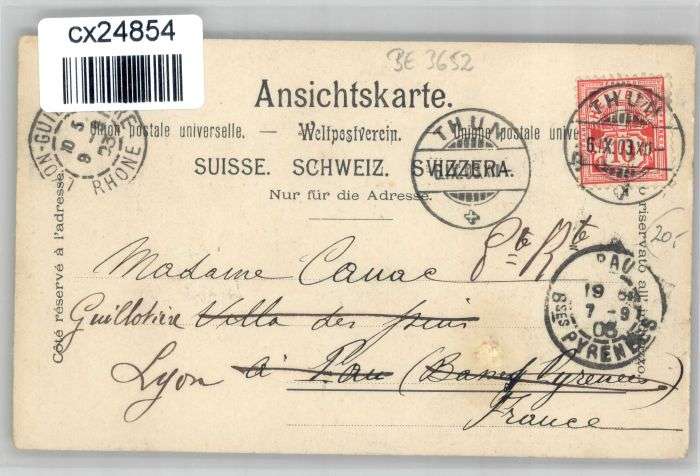 cx24854
BE 3652
Ansichtskarte.
Union postale universelle. — Weltpostverein. Unione postale unive
SUISSE. SCHWEIZ. SVIZZERA.
Nur für die Adresse.
Côté réservé à l'adresse.
riservato all'
LYON-GUI
RHONE
THUN
THUN
10
PAU
7 -9
BSES PYRENEES
20.-
Madame Canac
Guillotière Villa des pins
Lyon à Pau (Basses Pyrenées)
France